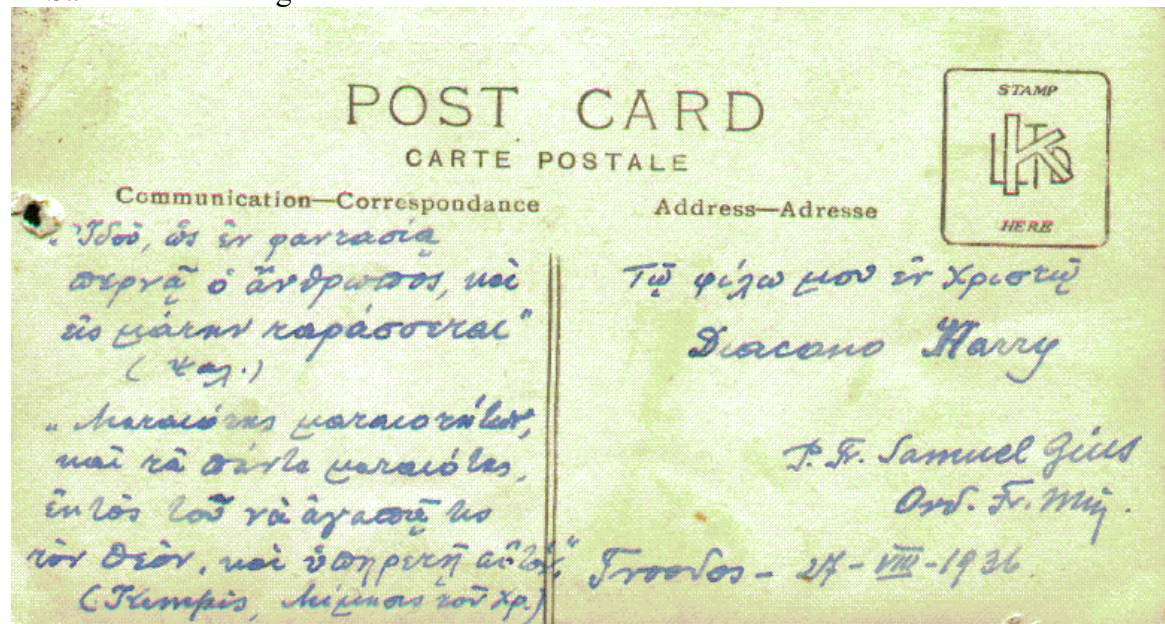 POST CARD
CARTE POSTALE
STAMP
KLTD
HERE
Communication—Correspondance
Address—Adresse
„Ἰδού, ὡς ἐν φαντασίᾳ
περνᾷ ὁ ἄνθρωπος, καὶ
εἰς μάτην ταράσσεται"
(Ψαλ.)
„Ματαιότης ματαιοτήτων,
καὶ τὰ πάντα ματαιότης,
ἐκτὸς τοῦ νὰ ἀγαπᾷ τις
τὸν Θεὸν, καὶ ὑπηρετῇ αὐτόν."
(Kempis, Μίμησις τοῦ Χρ.)
Τῷ φίλῳ μου ἐν Χριστῷ
Diacono Harry
P. Fr. Samuel
Ord. Fr. Min.
Troodos - 27 - VIII - 1936